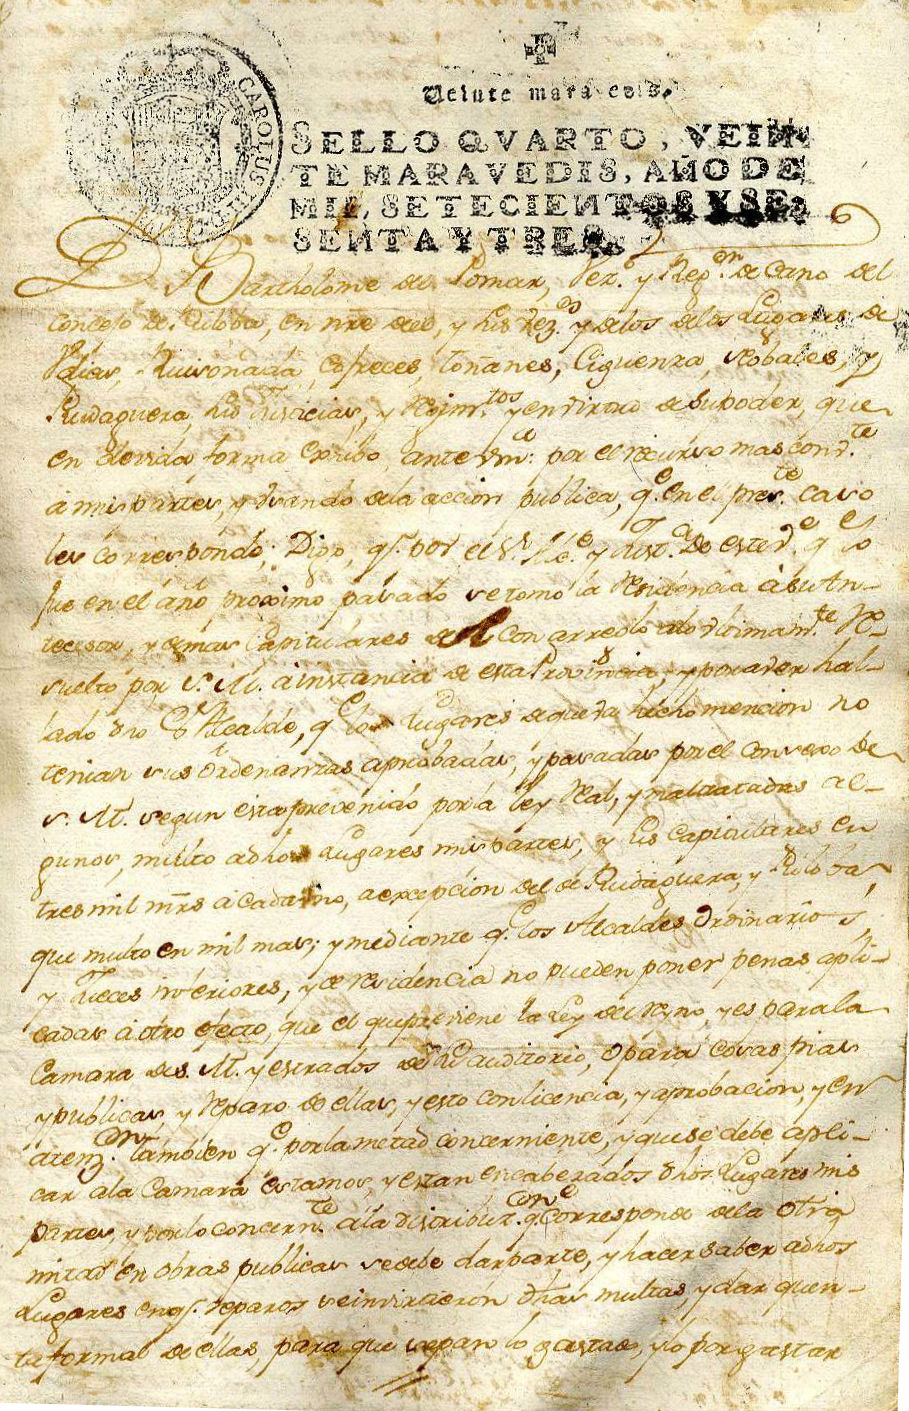 Veinte maravedis.
CAROLUS III
SELLO QVARTO, VEIN-
TE MARAVEDIS, AÑO DE
MIL SETECIENTOS Y SE-
SENTA Y TRES.
Bartholome de Pomar, Vez.º y Reg.or De Cano del
Concejo de Ruiloba, en nre de el, y sus vez.os y de los de los Lugares de
Quixonada, Cofreces, toñanes, Ciguenza, Cobales, y
Rudaguera, sus Justicias, y Regim.tos y en virtud de su poder, que
en devida forma exsibo, ante Vm.: por el recurso mas conv.te
a mis partes, y usando de la accion publica, q.e en el pres.te caso
les corresponde; Digo, q.e por el S.r Alc.e y Just.a De este q.e lo
fue en el año proximo pasado se tomo la residencia a su An-
tecesor, y demas Capitulares con arreglo a lo ultimam.te Re-
suelto por S. M. a instancia de esta Provincia, y por aver hal-
lado dho Alcalde, q.e los Lugares de que va hecho mencion no
tenian sus Ordenanzas aprobadas, y pasadas por el Consexo de
S. M. segun esta prevenido por la ley Real, y maltratadas al-
gunos, multo a dhos Lugares mis partes, y sus Capitulares en
tres mil mrs a cada uno, a excepcion del de Rudaguera, y Ruiloba,
que multo en mil mas; y mediante q.e los Alcaldes Ordinarios,
y Jueces inferiores, y de residencia no pueden poner penas apli-
cadas a otro efecto, que el que previene la Ley del Reyno, y es para la
Camara de S. M. y estrados de su auditorio, o para cosas pias
y publicas, y reparo de ellas, y esto con licencia, y aprobacion, y en
atenz.on tambien q.e por la metad concerniente, y que se debe apli-
car a la Camara estamos, y estan encabezados dhos Lugares mis
partes, y por lo concern.te a la distribuz.on q.e corresponde de la otra
mitad en obras publicas se debe dar parte, y hacer saber a dhos
Lugares en q.e reparos se invirtieron dhas multas, y dar quen-
ta formal de ellas, para que sepan lo gastado, y lo por gastar